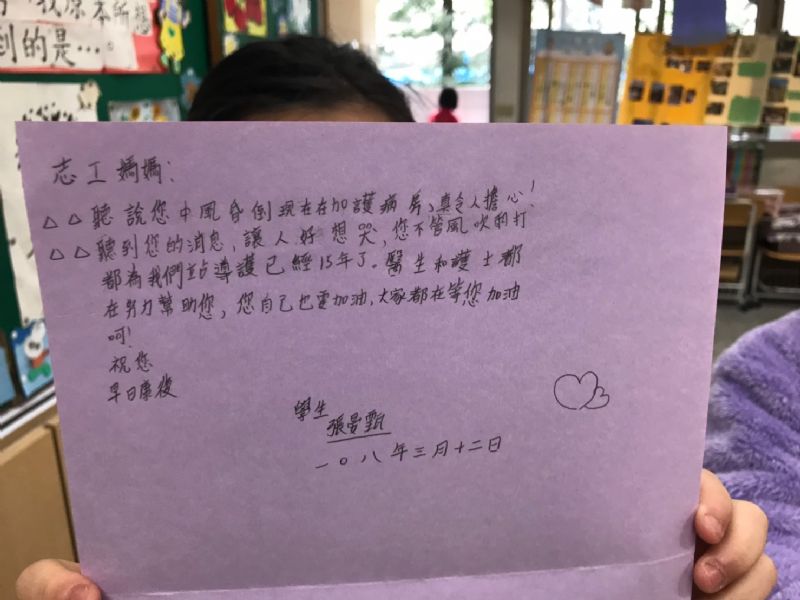 我原本所想
到的是…。
志工媽媽:
△△聽說您中風昏倒現在在加護病房,真令人擔心!
△△聽到您的消息,讓人好想哭,您不管風吹雨打
都為我們站導護已經15年了。醫生和護士都
在努力幫助您,您自己也要加油,大家都在等您加油
呵!
祝您
早日康復
學生
張晏甄
一○八年三月十二日